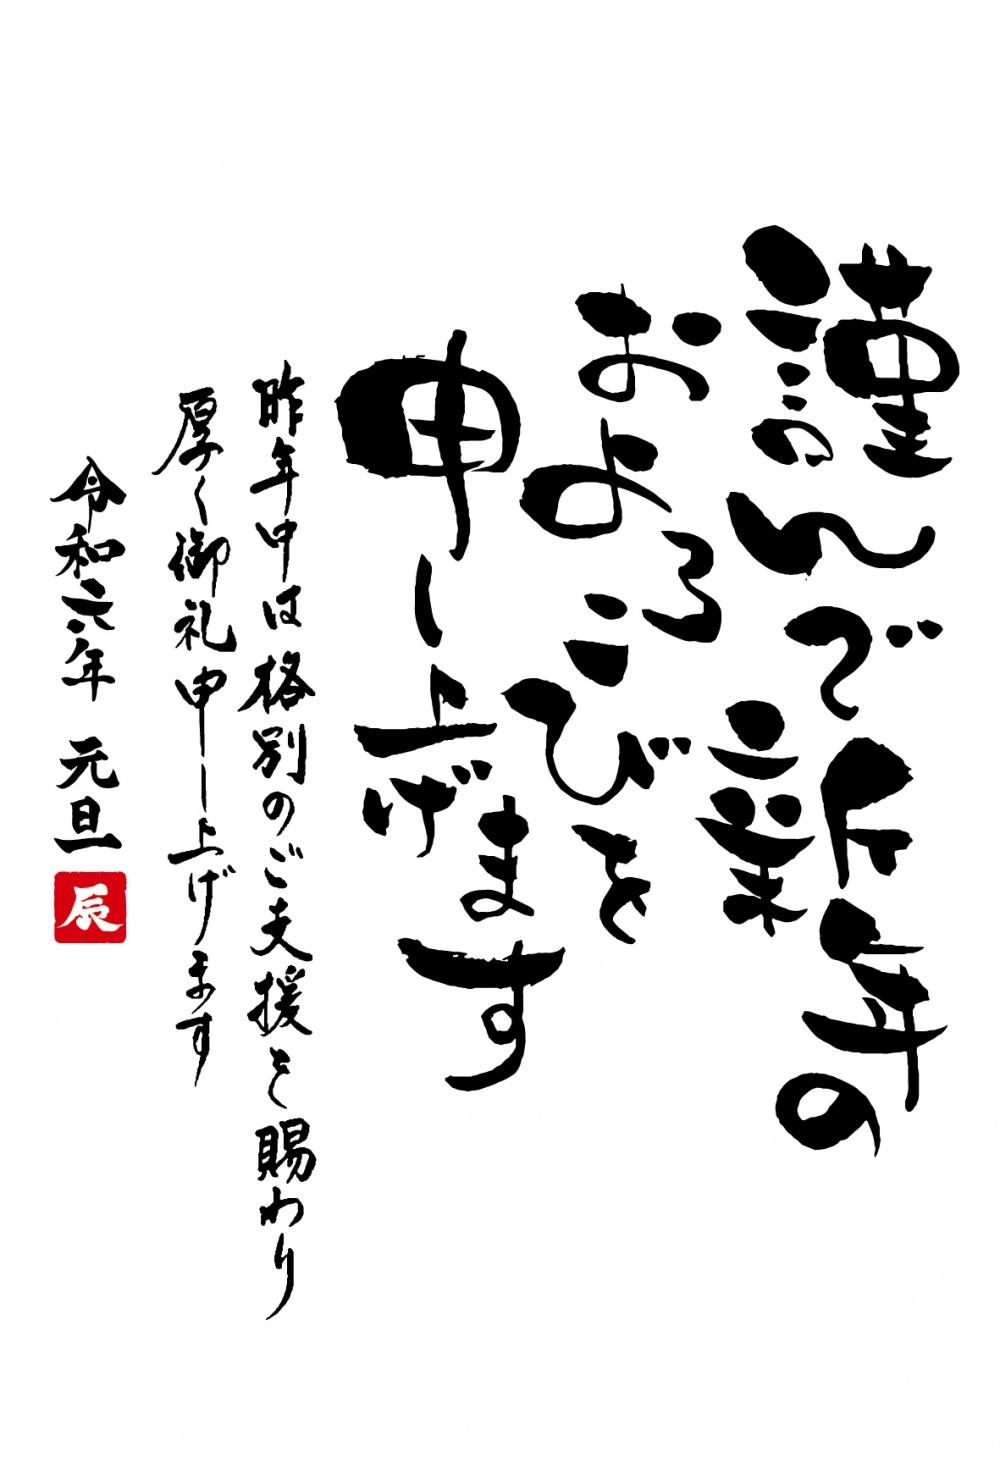 謹んで新年の
およろこびを
申し上げます
昨年中は格別のご支援を賜わり
厚く御礼申し上げます
令和六年 元旦
辰